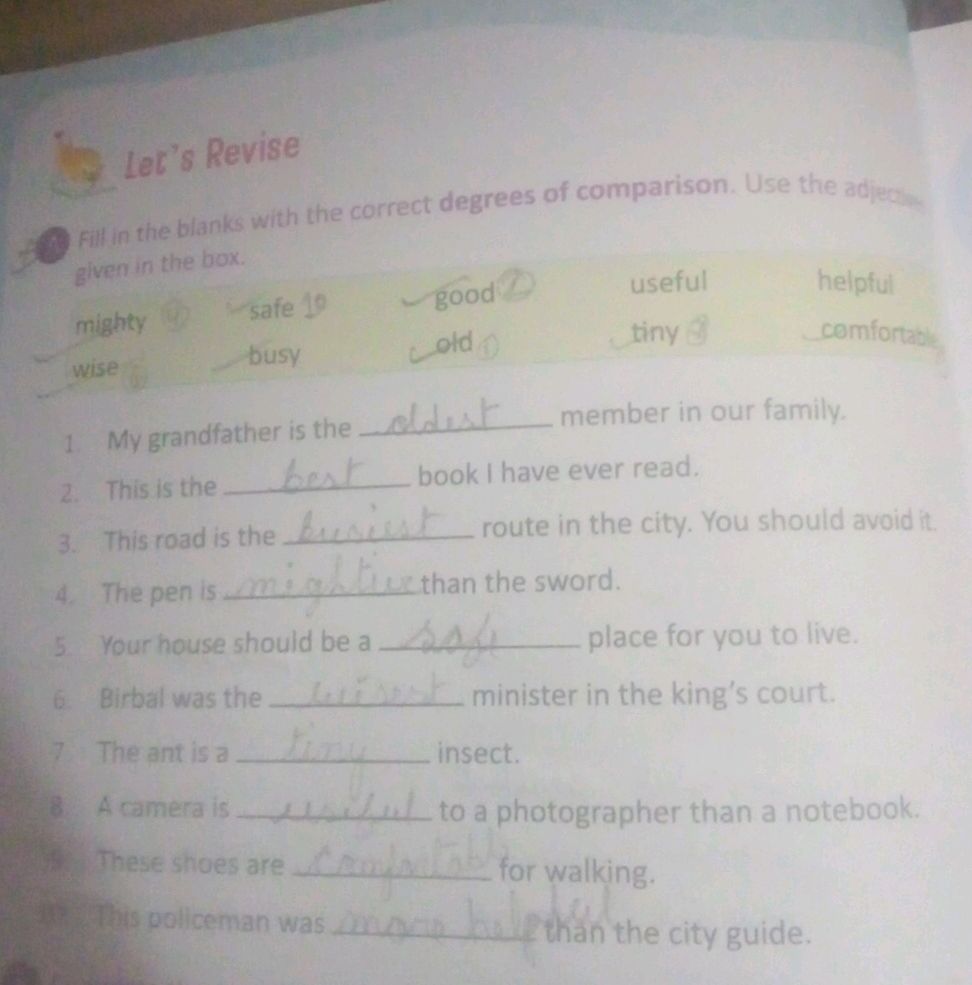 Let's Revise
Fill in the blanks with the correct degrees of comparison. Use the
given in the box.
mighty safe 10 good useful helpful
wise busy old 1 tiny comfortable
1. My grandfather is the oldest member in our family.
2. This is the best book I have ever read.
3. This road is the busiest route in the city. You should avoid it.
4. The pen is than the sword.
5. Your house should be a safe place for you to live.
6. Birbal was the wisest minister in the king's court.
7. The ant is a tiny insect.
8. A camera is useful to a photographer than a notebook.
9. These shoes are comfortable for walking.
10. This policeman was more helpful than the city guide.